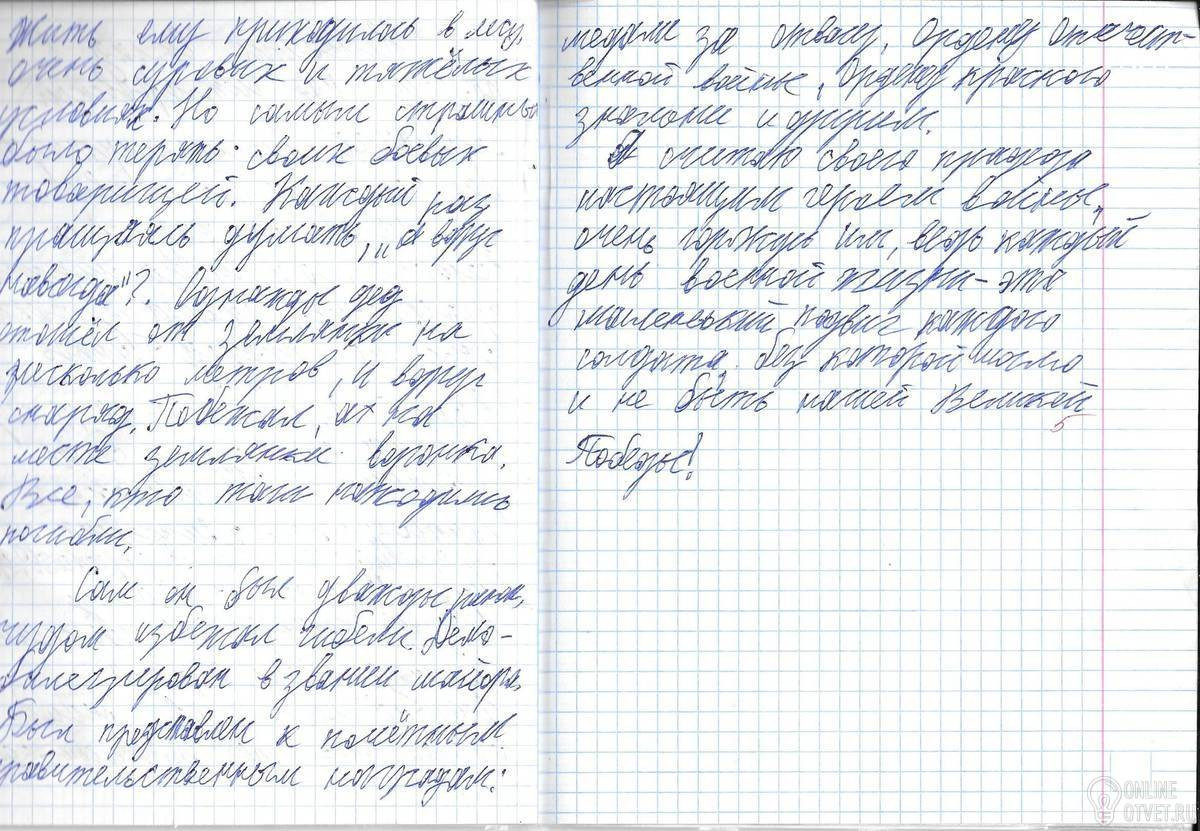 Жить ему приходилось в лесу,
очень суровых и тяжёлых
условиях. Но самым страшным
было терять своих боевых
товарищей. Каждый раз
прощаясь думать, „а вдруг
навсегда"?. Однажды дед
отошёл от землянки на
несколько метров, и вдруг
снаряд. Побежал, а на
месте землянки воронка.
Все, кто там находились
погибли.
Сам он был дважды ранен,
чудом избежал гибели. Демо-
билизирован в звании майора.
Был представлен к почётным
правительственным наградам:
медали за отвагу, Ордену Отечест-
венной войны, Ордену красного
знамени и другим.
Я считаю своего прадеда
настоящим героем войны,
очень горжусь им, ведь каждый
день военной жизни - это
маленький подвиг каждого
солдата, без которой могло
и не быть нашей Великой
5
Победы!
ONLINE
OTVET.RU